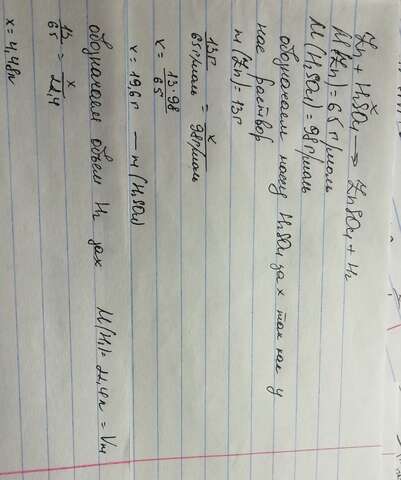 Zn + H₂SO₄ → ZnSO₄ + H₂
M(Zn) = 65 г/моль
M(H₂SO₄) = 98 г/моль
обозначаем массу H₂SO₄ за x так как у
нас раствор
m(Zn) = 13 г
13 г / 65 г/моль = x / 98 г/моль
x = 13·98 / 65
x = 19,6 г — m(H₂SO₄)
обозначаем объем H₂ за x M(H₂) = 22,4 л = Vm
13 / 65 = x / 22,4
x = 4,48 л